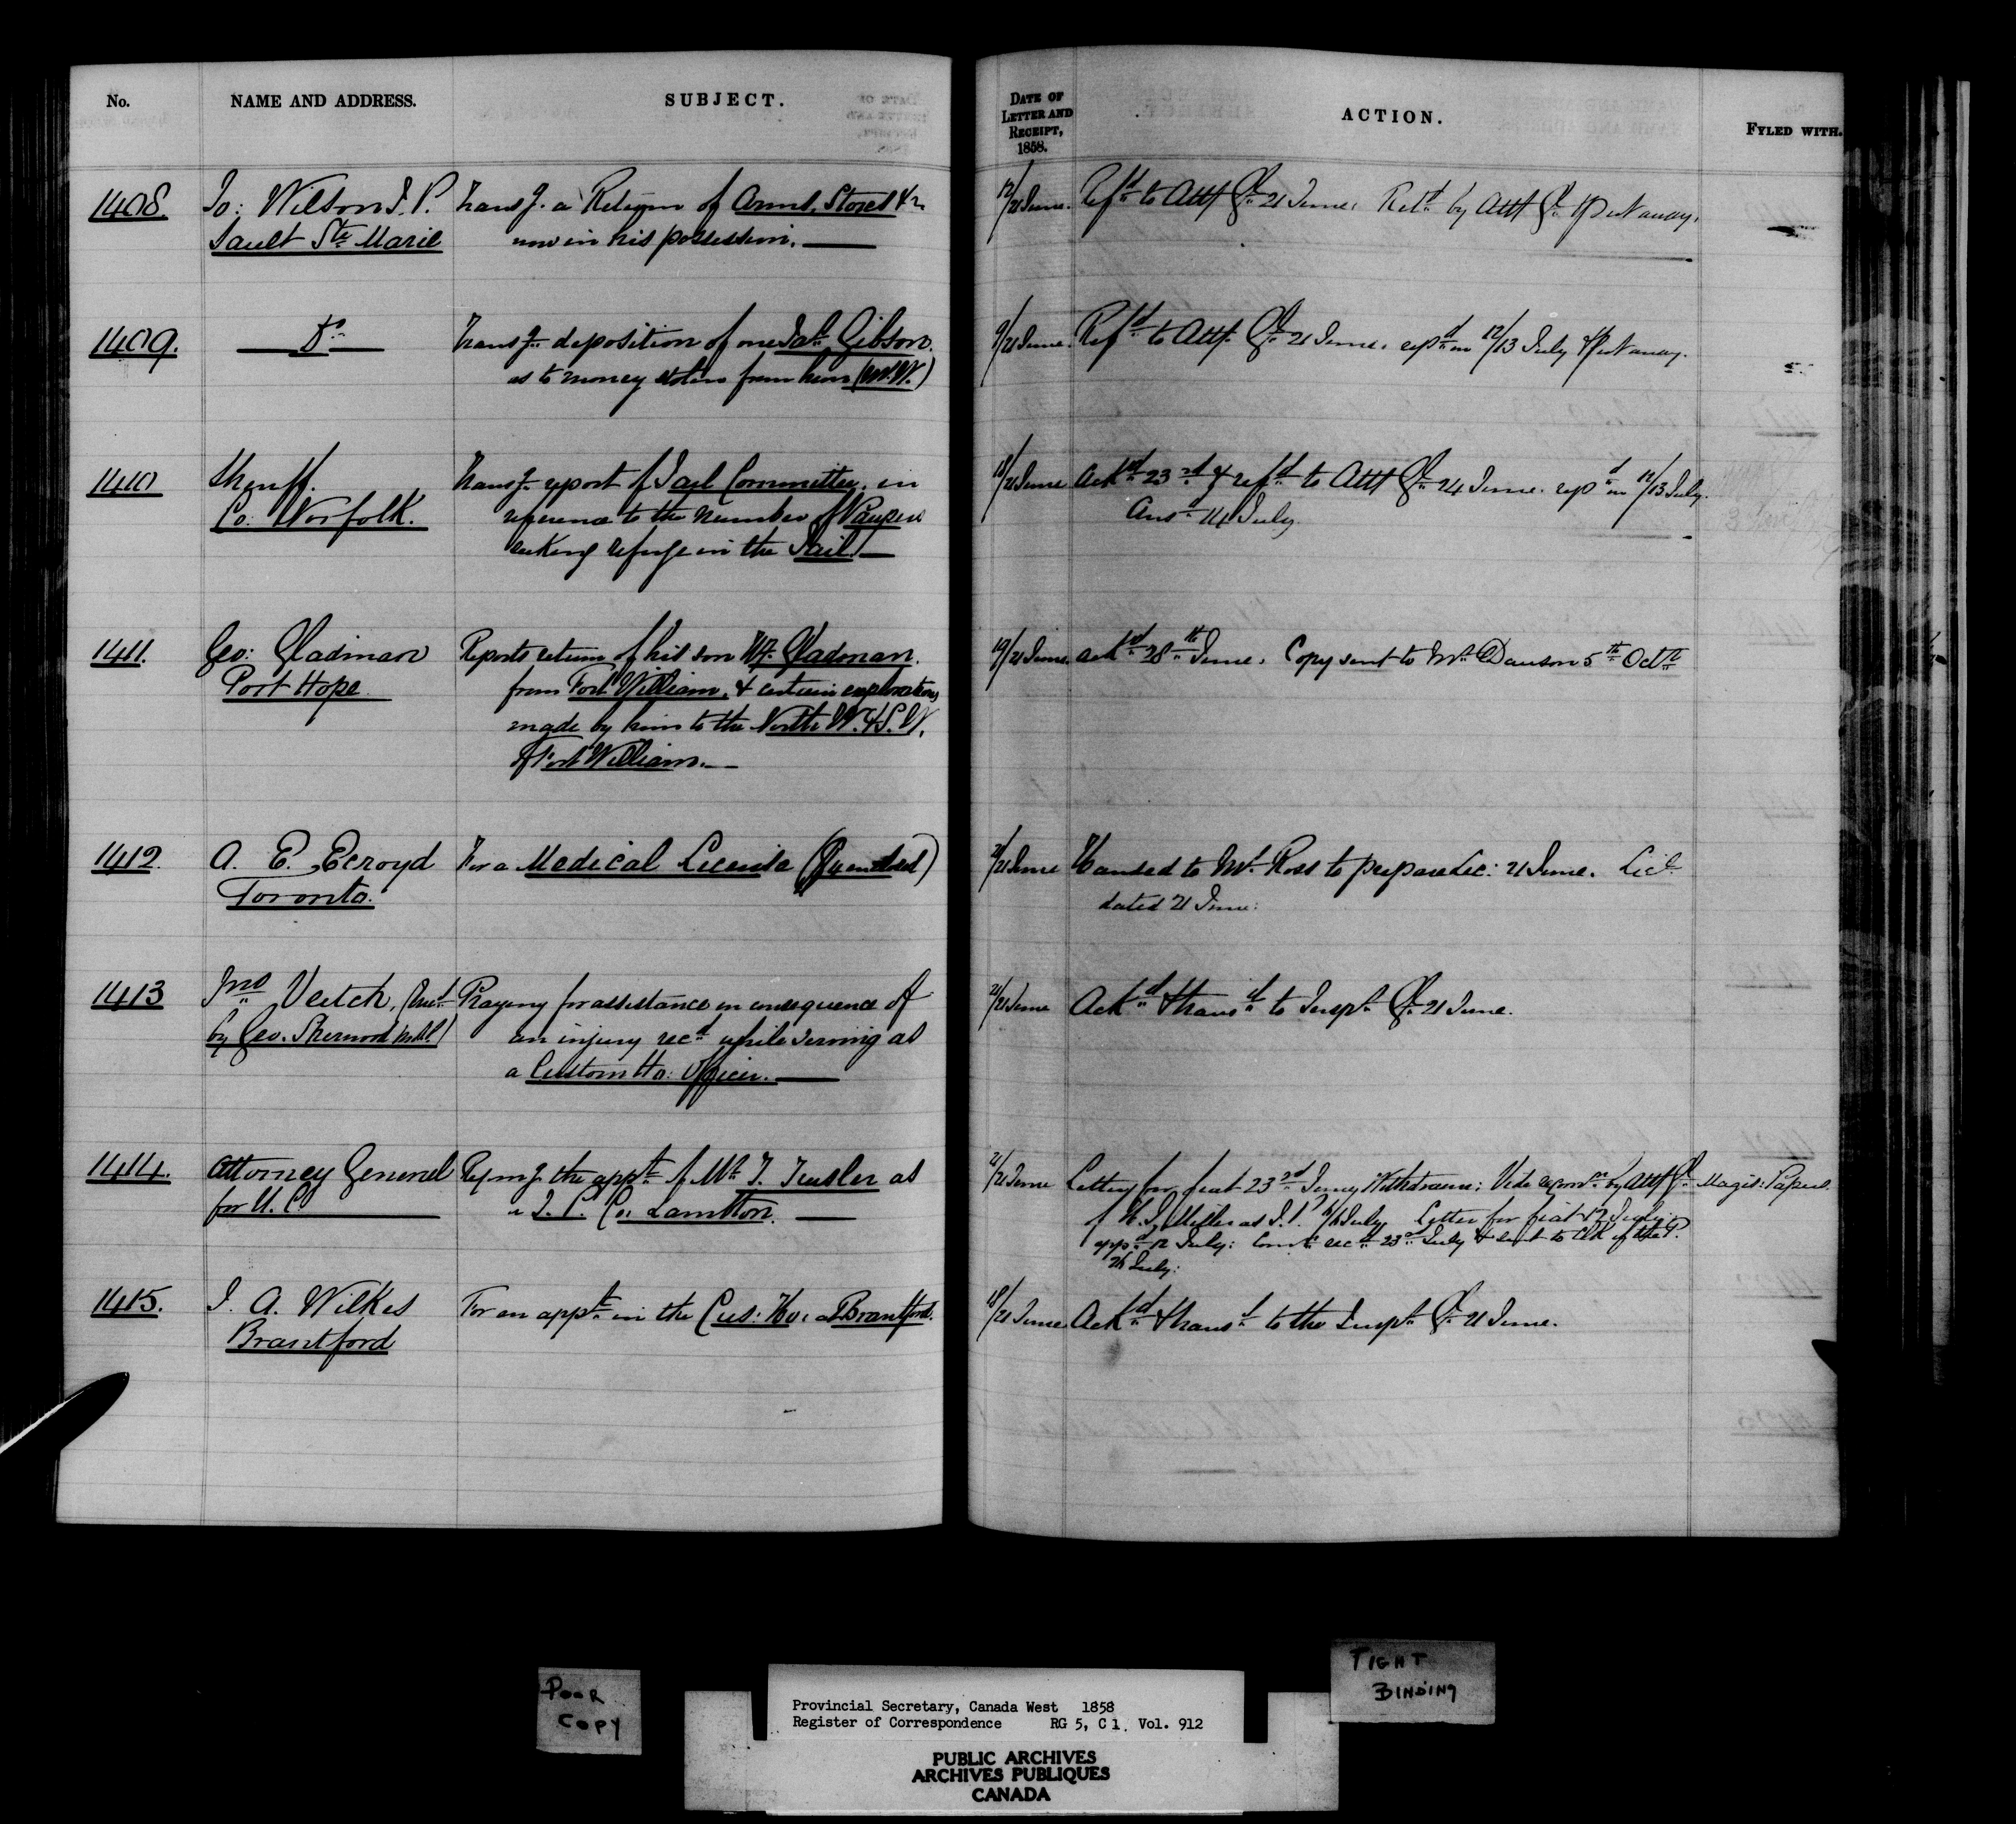 No. NAME AND ADDRESS. SUBJECT.
1408. Jo: Wilson J.P. Transg. a Return of Arms, Stores &c
Sault Ste Marie now in his possession.
1409. Do Transg. deposition of one Gibson.
as to money stolen from him (Mr. W.)
1410 Sheriff. Transg. report of Jail Committee, in
Co: Norfolk. reference to the number of Paupers
seeking refuge in the Jail
1411. Geo: Gladman Reports return of his son Gladman.
Port Hope from Fort William, & certain explorations
made by him to the North W. & S. W.
of Fort William.
1412. A. E. Ecroyd For a Medical License
Toronto.
1413 Jno Veitch, Praying for assistance in consequence of
by Geo. Sherwood M.P.P.) an injury recd while serving as
a Custom Ho: Officer.
1414. Attorney General the appt of Mr as
for U. C. a J. P. Co. Lambton.
1415. J. A. Wilkes For an appt in the Cus: Ho: at Brantford.
Brantford
DATE OF
LETTER AND
RECEIPT,
1858.
ACTION. FYLED WITH.
12/21 June. Refd to Atty Gl 21 June. Retd by Atty Gl & put away.
9/21 June. Refd to Atty. Gl 21 June. repd on 12/13 July & put away.
18/21 June Ackd 23rd & refd to Atty Gl 24 June. repd on 12/13 July.
Ansd 14 July.
19/21 June. ackd 28th June. Copy sent to Mr Dawson 5th Octr
21/21 June Handed to Mr. Ross to prepare Lic: 21 June. Lic.
dated 21 June.
21/21 June Ackd & transd to Inspr Gl 21 June.
21/21 June Letter for fiat 23rd June; Withdrawn; Vide by Atty Gl Magis: Papers.
of Miller as J.P. July. Letter for fiat 12 July;
appd 12 July: Comn recd 23rd July & sent to Clk of the P.
26 July:
18/21 June Ackd & transd to the Inspr Gl 21 June.
POOR
COPY
TIGHT
BINDING
Provincial Secretary, Canada West 1858
Register of Correspondence RG 5, C 1. Vol. 912
PUBLIC ARCHIVES
ARCHIVES PUBLIQUES
CANADA